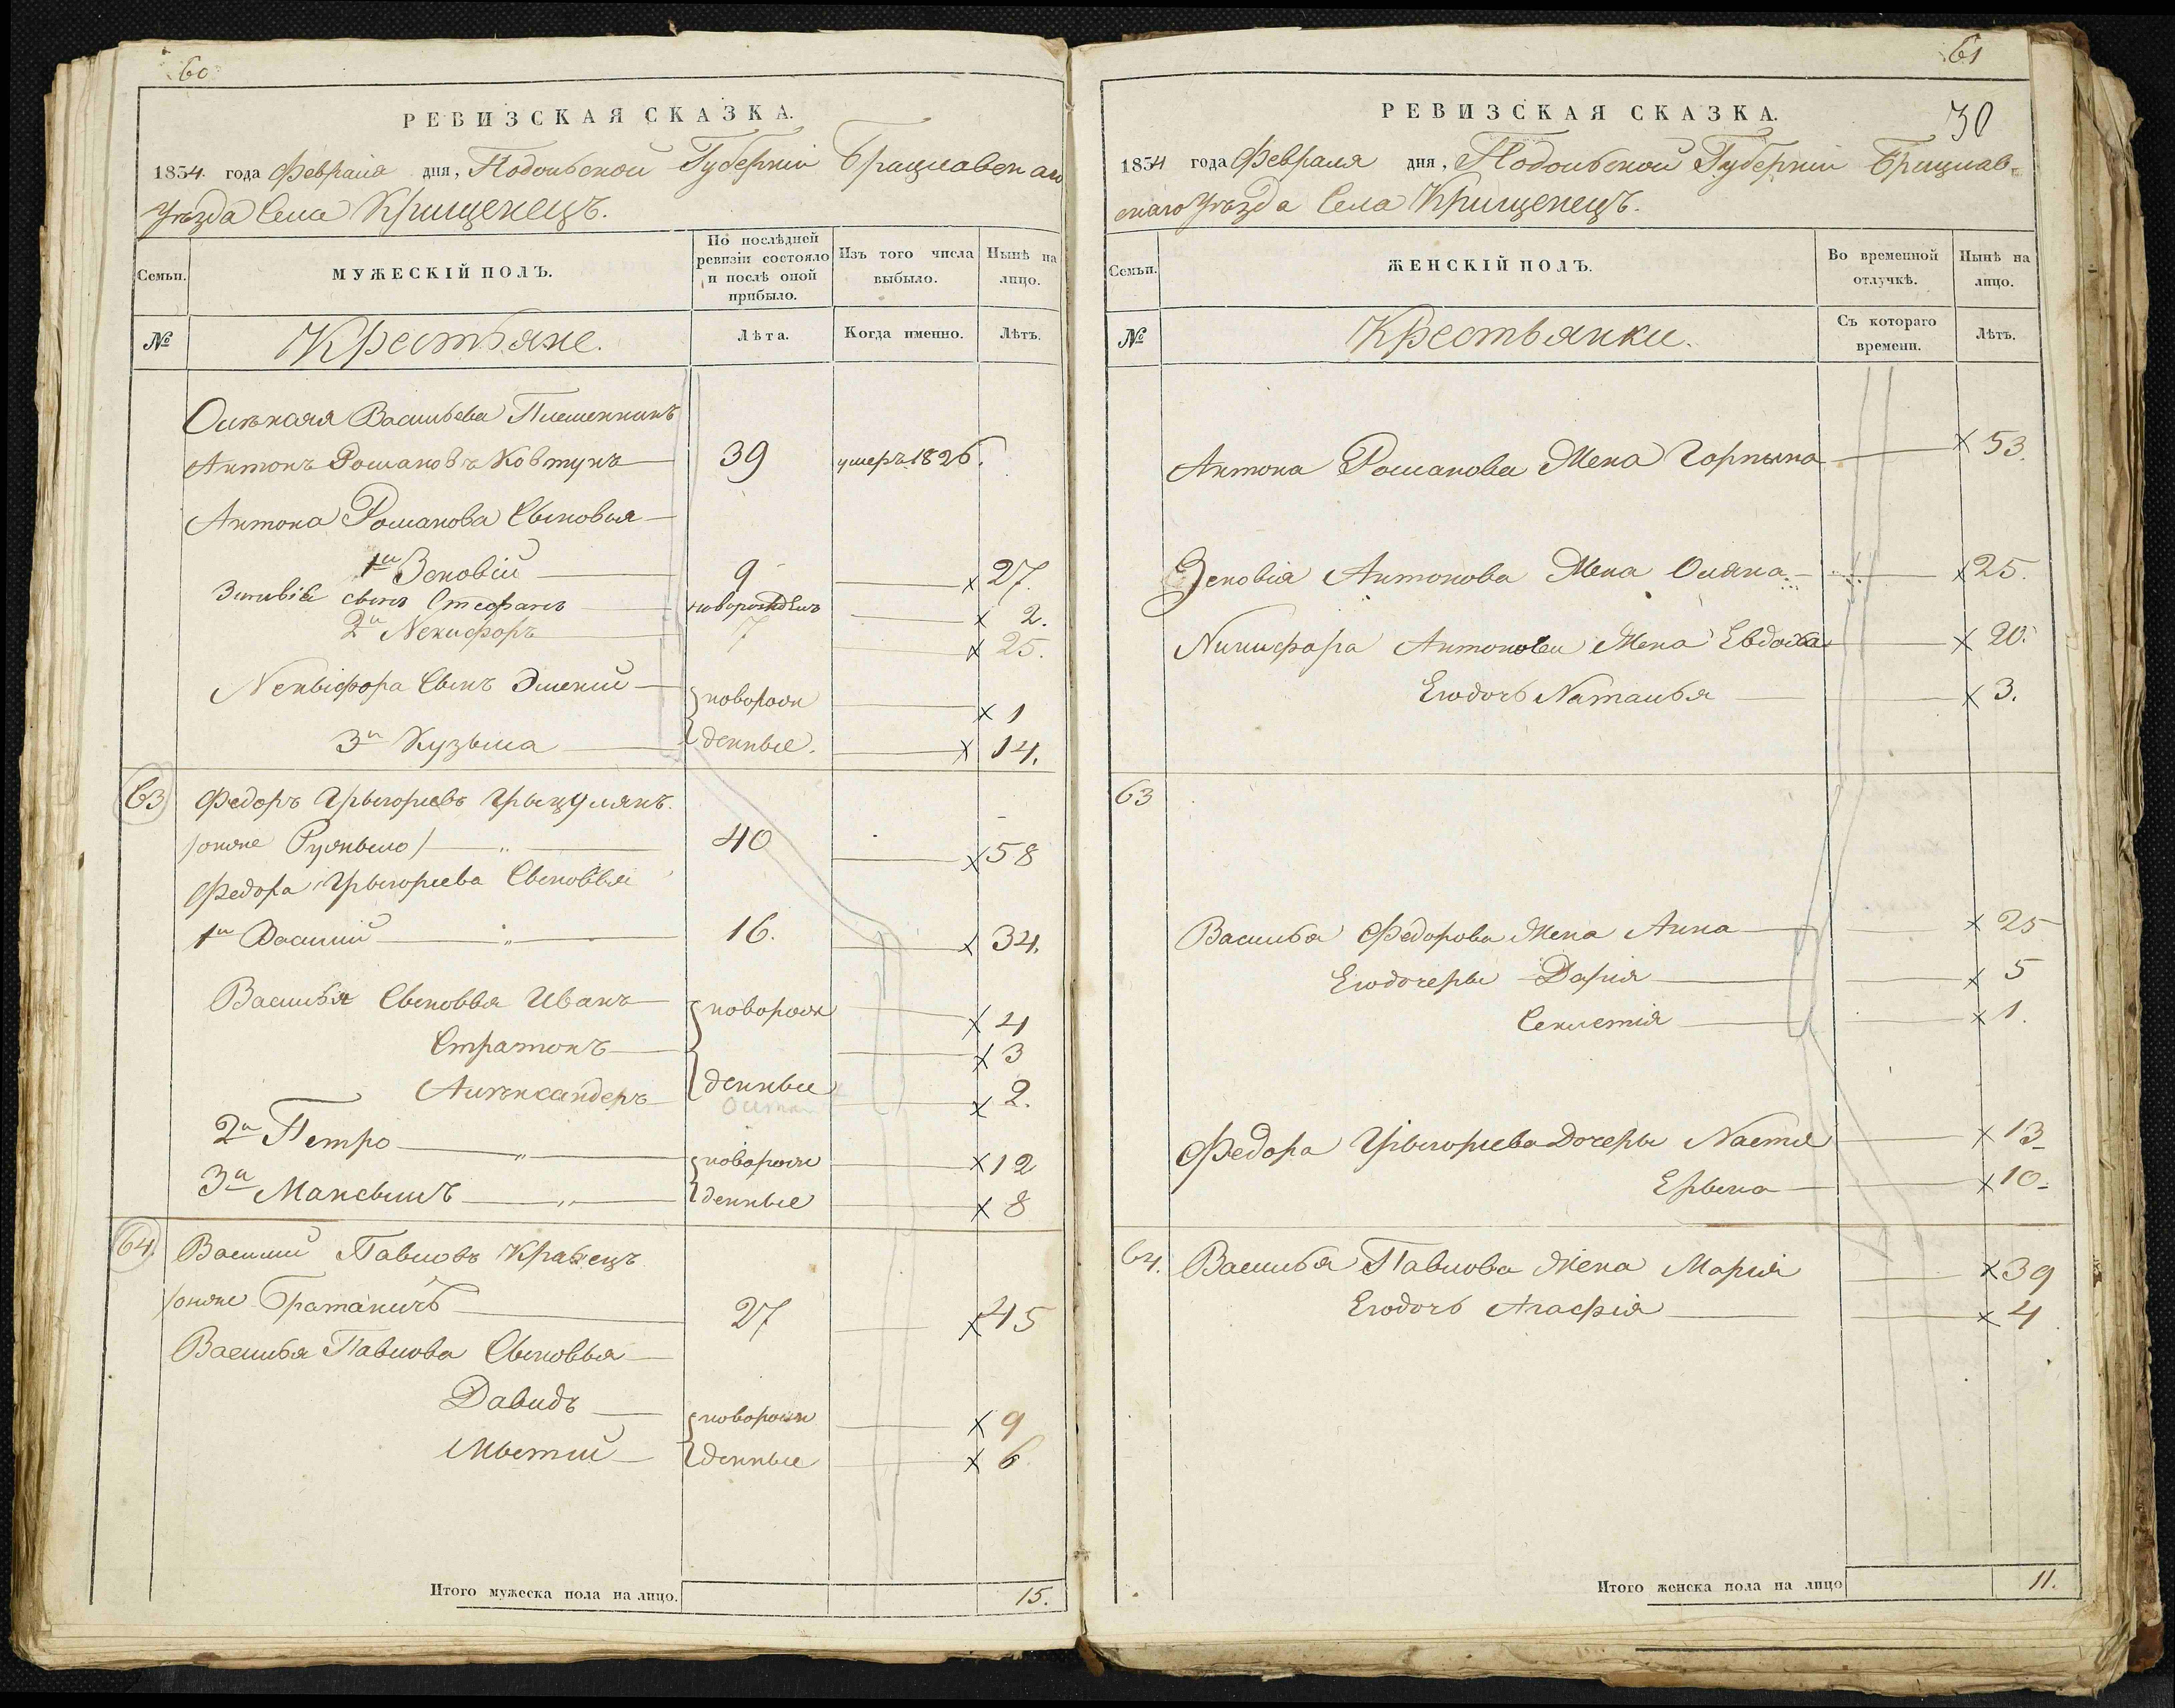 60
РЕВИЗСКАЯ СКАЗКА.
1834. года Февраля дня, Подольской Губерніи Брацлавскаго
Уѣзда Села Крищенецъ.
Семьи.
МУЖЕСКІЙ ПОЛЪ.
По послѣдней ревизіи состояло и послѣ оной прибыло.
Изъ того числа выбыло.
Нынѣ на лицо.
№
Крестьяне.
Лѣта.
Когда именно.
Лѣтъ.
Васильева Племенникъ
Антонъ Романовъ Ковтунъ 39 умеръ 1826.
Антона Романова Сыновья
1й Зеновій 9 х 27.
Зиновія сынъ Стефанъ новорожденъ х 2.
2й Никифоръ 7 х 25.
Никифора Сынъ новорож х 1
3й Кузьма денные. х 14.
63 Федоръ Грыгорьевъ Грыцулякъ.
/онже 40 х 58
Федора Грыгорьева Сыновья
1й Василий 16. х 34.
Василья Сыновья Иванъ новорож х 4
Стратонъ х 3
Александеръ денные х 2.
2й Петро новорож х 12
3й Максымъ денные х 8
64. Василий Павловъ Кравецъ
/онже Братаничъ 27 х 45
Василья Павлова Сыновья
Давидъ новорож х 9
денные х 6
Итого мужеска пола на лицо. 15.
61
30
РЕВИЗСКАЯ СКАЗКА.
1834 года Февраля дня, Подольской Губерніи Брацлав-
скаго Уѣзда Села Крищенецъ.
Семьи.
ЖЕНСКІЙ ПОЛЪ.
Во временной отлучкѣ.
Нынѣ на лицо.
№
Крестьянки.
Съ котораго времени.
Лѣтъ.
Антона Романова Жена Горпына х 53.
Зеновія Антонова Жена Оляна х 25.
Никифора Антонова Жена Евдоха х 20.
Егодочь Наталья х 3.
63
Василья Федорова Жена Анна х 25
Егодочеры Дарія х 5
Секлетія х 1.
Федора Грыгорьева Дочеры Настя х 13
Ерына х 10.
64. Василья Павлова Жена Марія х 39
Егодочь Агафія х 4
Итого женска пола на лицо 11.